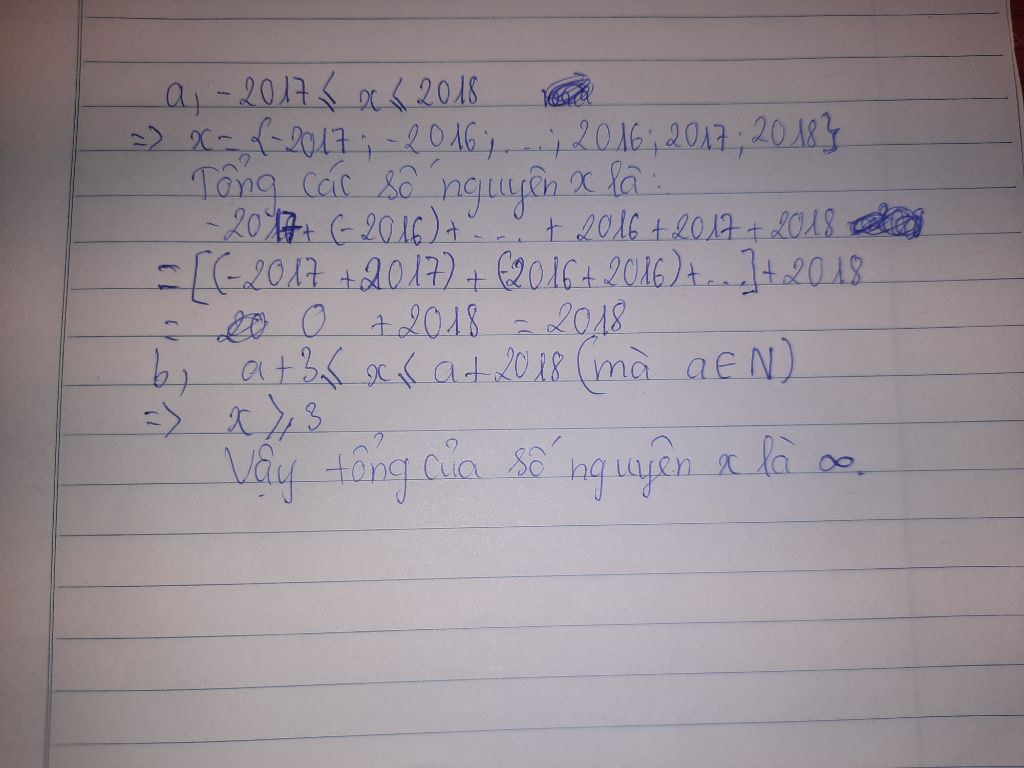 a, -2017 ⩽ x ⩽ 2018
=> x = {-2017; -2016; ...; 2016; 2017; 2018}
Tổng các số nguyên x là:
-2017 + (-2016) + .... + 2016 + 2017 + 2018
= [(-2017 + 2017) + (-2016 + 2016) + ...] + 2018
= 0 + 2018 = 2018
b, a + 3 ⩽ x ⩽ a + 2018 (mà a ∈ N)
=> x ⩾ 3
Vậy tổng của số nguyên x là ∞.